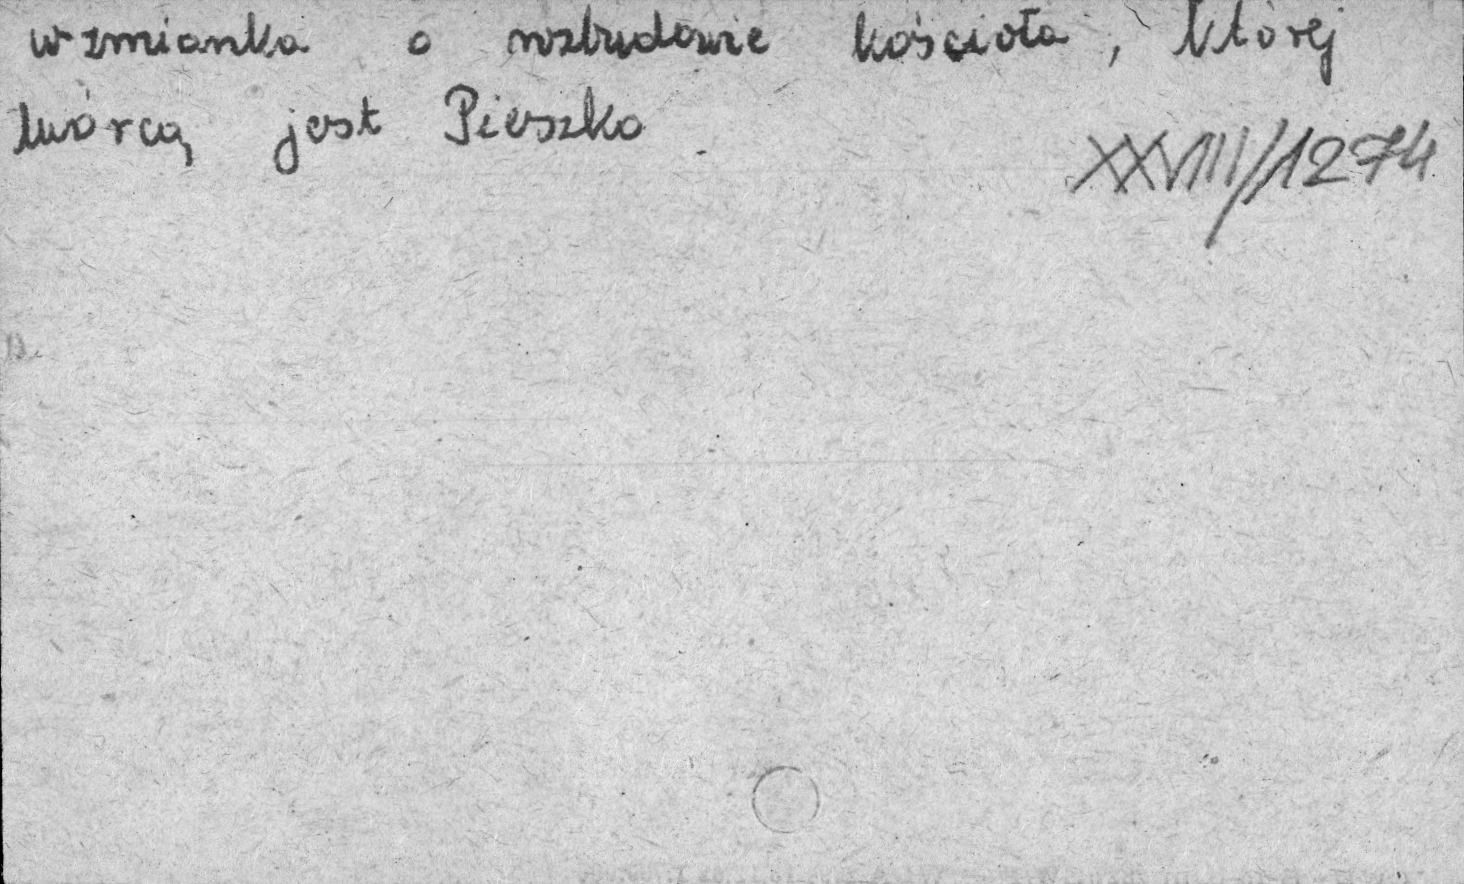 wzmianka o rozbudowie kościoła, której
twórcą jest Pieszko
XXVIII/1274